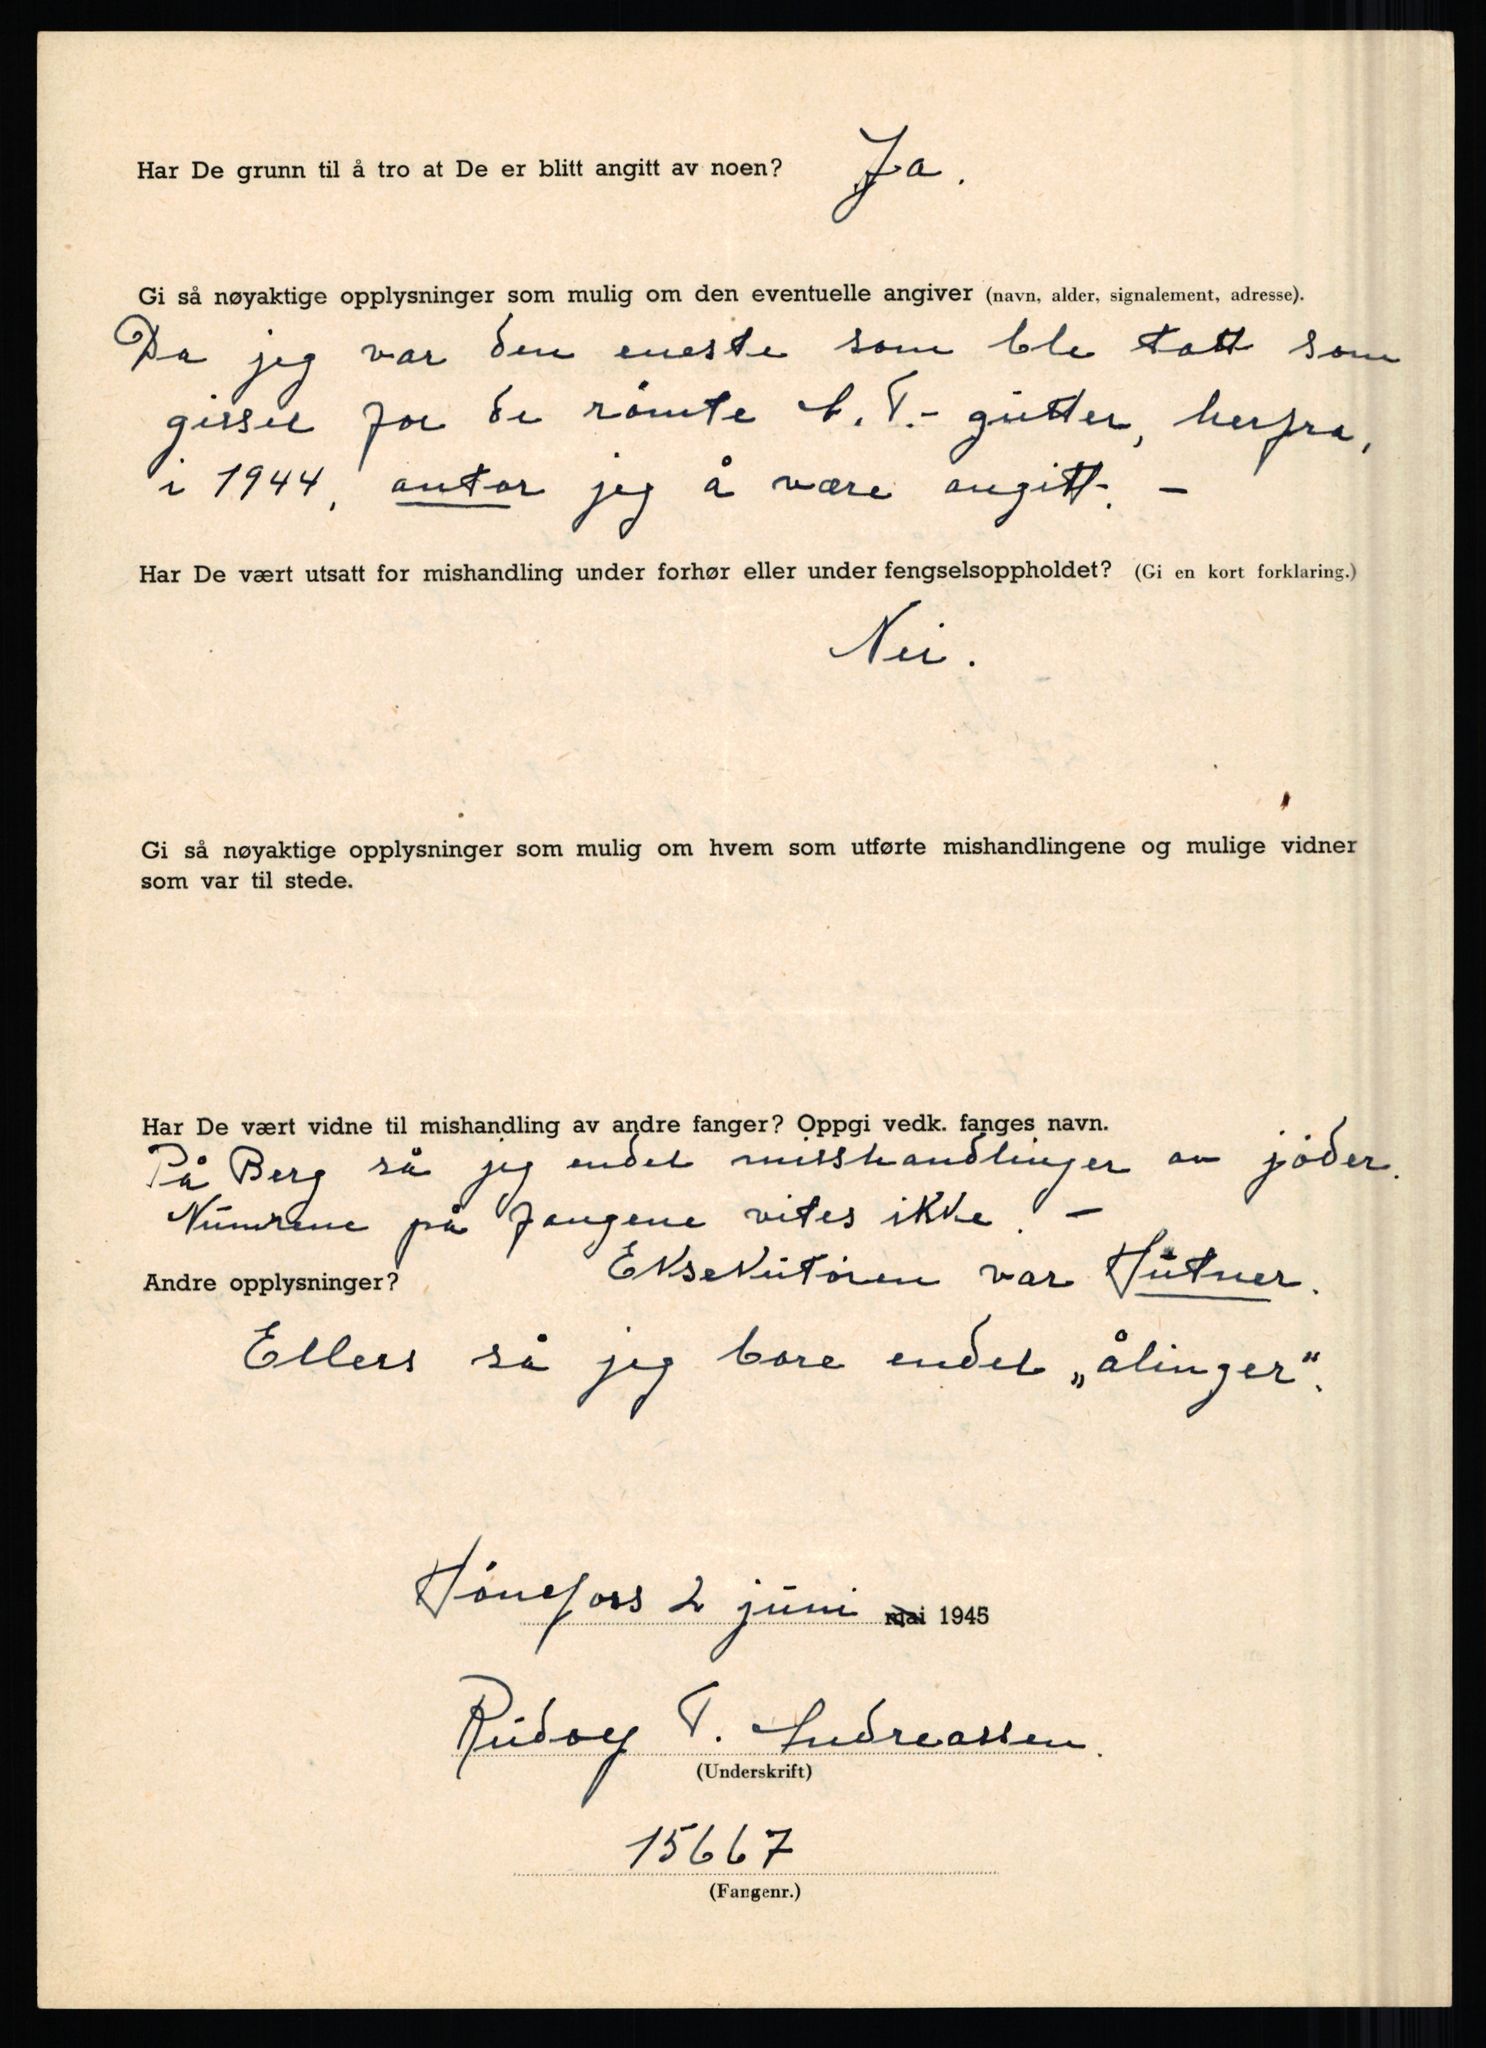 Har De grunn til å tro at De er blitt angitt av noen? Ja.
Gi så nøyaktige opplysninger som mulig om den eventuelle angiver (navn, alder, signalement, adresse).
Da jeg var den eneste som ble tatt som
gissel for de rømte A.T.- gutter, herfra,
i 1944, antar jeg å være angitt. -
Har De vært utsatt for mishandling under forhør eller under fengselsoppholdet? (Gi en kort forklaring.)
Nei.
Gi så nøyaktige opplysninger som mulig om hvem som utførte mishandlingene og mulige vidner
som var til stede.
Har De vært vidne til mishandling av andre fanger? Oppgi vedk. fanges navn.
På Berg så jeg endel misshandlinger av jøder.
Numrene på fangene vites ikke. -
Eksekutøren var Hütner.
Andre opplysninger?
Ellers så jeg bare endel „ålinger“.
Hønefoss 2 juni mai 1945
Rudolf T. Andreassen.
(Underskrift)
15667
(Fangenr.)